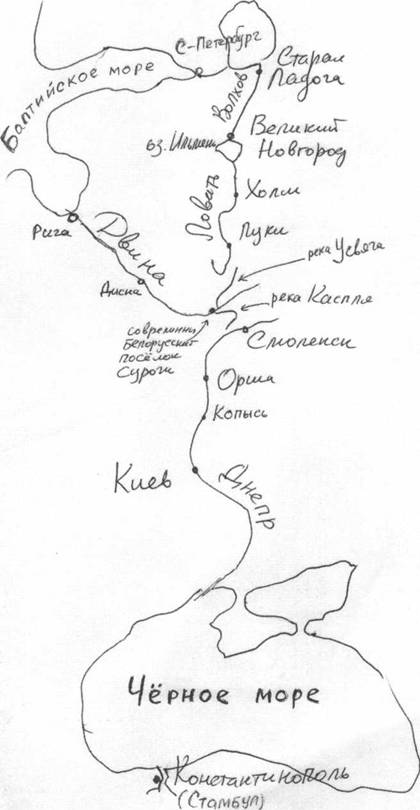 С-Петербург
Балтийское море
Старая
Ладога
Волхов
оз. Ильмень
Великий
Новгород
Холм
Ловать
Луки
Рига
Двина
река Усвяча
Дисна
река Каспля
современный
Белорусский
посёлок
Сурожи
Смоленск
Орша
Копысь
Киев
Днепр
Чёрное море
Константинополь
(Стамбул)